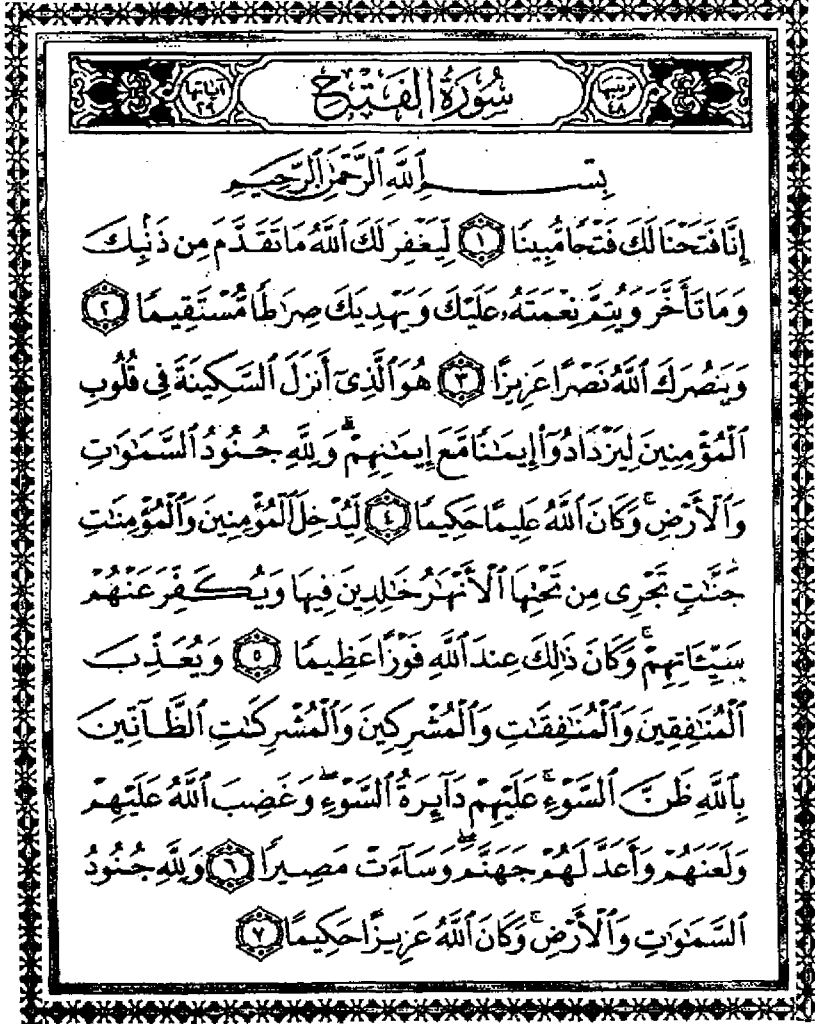 ترتيبها ٤٨ سُورَةُ الفَتْحِ آياتها ٢٩
بِسْمِ ٱللَّهِ ٱلرَّحْمَٰنِ ٱلرَّحِيمِ
إِنَّا فَتَحْنَا لَكَ فَتْحًا مُّبِينًا ١ لِّيَغْفِرَ لَكَ ٱللَّهُ مَا تَقَدَّمَ مِن ذَنۢبِكَ
وَمَا تَأَخَّرَ وَيُتِمَّ نِعْمَتَهُۥ عَلَيْكَ وَيَهْدِيَكَ صِرَٰطًا مُّسْتَقِيمًا ٢
وَيَنصُرَكَ ٱللَّهُ نَصْرًا عَزِيزًا ٣ هُوَ ٱلَّذِىٓ أَنزَلَ ٱلسَّكِينَةَ فِى قُلُوبِ
ٱلْمُؤْمِنِينَ لِيَزْدَادُوٓا۟ إِيمَٰنًا مَّعَ إِيمَٰنِهِمْ ۗ وَلِلَّهِ جُنُودُ ٱلسَّمَٰوَٰتِ
وَٱلْأَرْضِ ۚ وَكَانَ ٱللَّهُ عَلِيمًا حَكِيمًا ٤ لِّيُدْخِلَ ٱلْمُؤْمِنِينَ وَٱلْمُؤْمِنَٰتِ
جَنَّٰتٍ تَجْرِى مِن تَحْتِهَا ٱلْأَنْهَٰرُ خَٰلِدِينَ فِيهَا وَيُكَفِّرَ عَنْهُمْ
سَيِّـَٔاتِهِمْ ۚ وَكَانَ ذَٰلِكَ عِندَ ٱللَّهِ فَوْزًا عَظِيمًا ٥ وَيُعَذِّبَ
ٱلْمُنَٰفِقِينَ وَٱلْمُنَٰفِقَٰتِ وَٱلْمُشْرِكِينَ وَٱلْمُشْرِكَٰتِ ٱلظَّآنِّينَ
بِٱللَّهِ ظَنَّ ٱلسَّوْءِ ۚ عَلَيْهِمْ دَآئِرَةُ ٱلسَّوْءِ ۖ وَغَضِبَ ٱللَّهُ عَلَيْهِمْ
وَلَعَنَهُمْ وَأَعَدَّ لَهُمْ جَهَنَّمَ ۖ وَسَآءَتْ مَصِيرًا ٦ وَلِلَّهِ جُنُودُ
ٱلسَّمَٰوَٰتِ وَٱلْأَرْضِ ۚ وَكَانَ ٱللَّهُ عَزِيزًا حَكِيمًا ٧